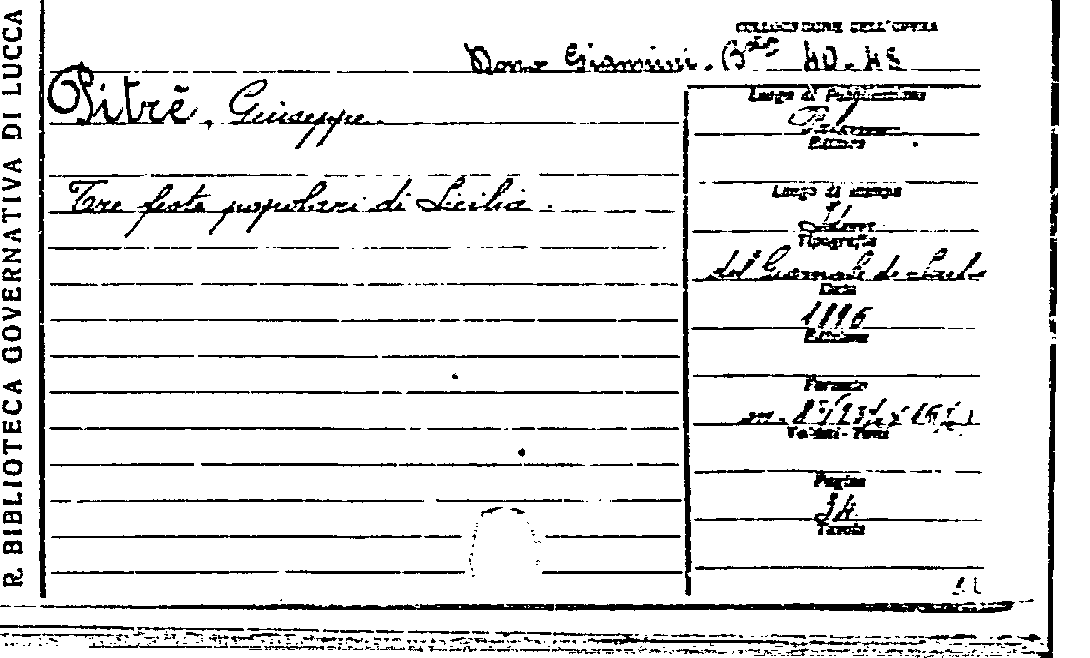 R. BIBLIOTECA GOVERNATIVA DI LUCCA
COLLOCAZIONE DELL'OPERA
Dono Giannini. Bta 40-45
Pitrè, Giuseppe
Tre feste popolari di Sicilia.
Luogo di Pubblicazione
Editore
Luogo di stampa
Tipografia
del Giornale di
Data
1896
Edizione
Formato
Volumi - Parti
Pagine
34
Tavole